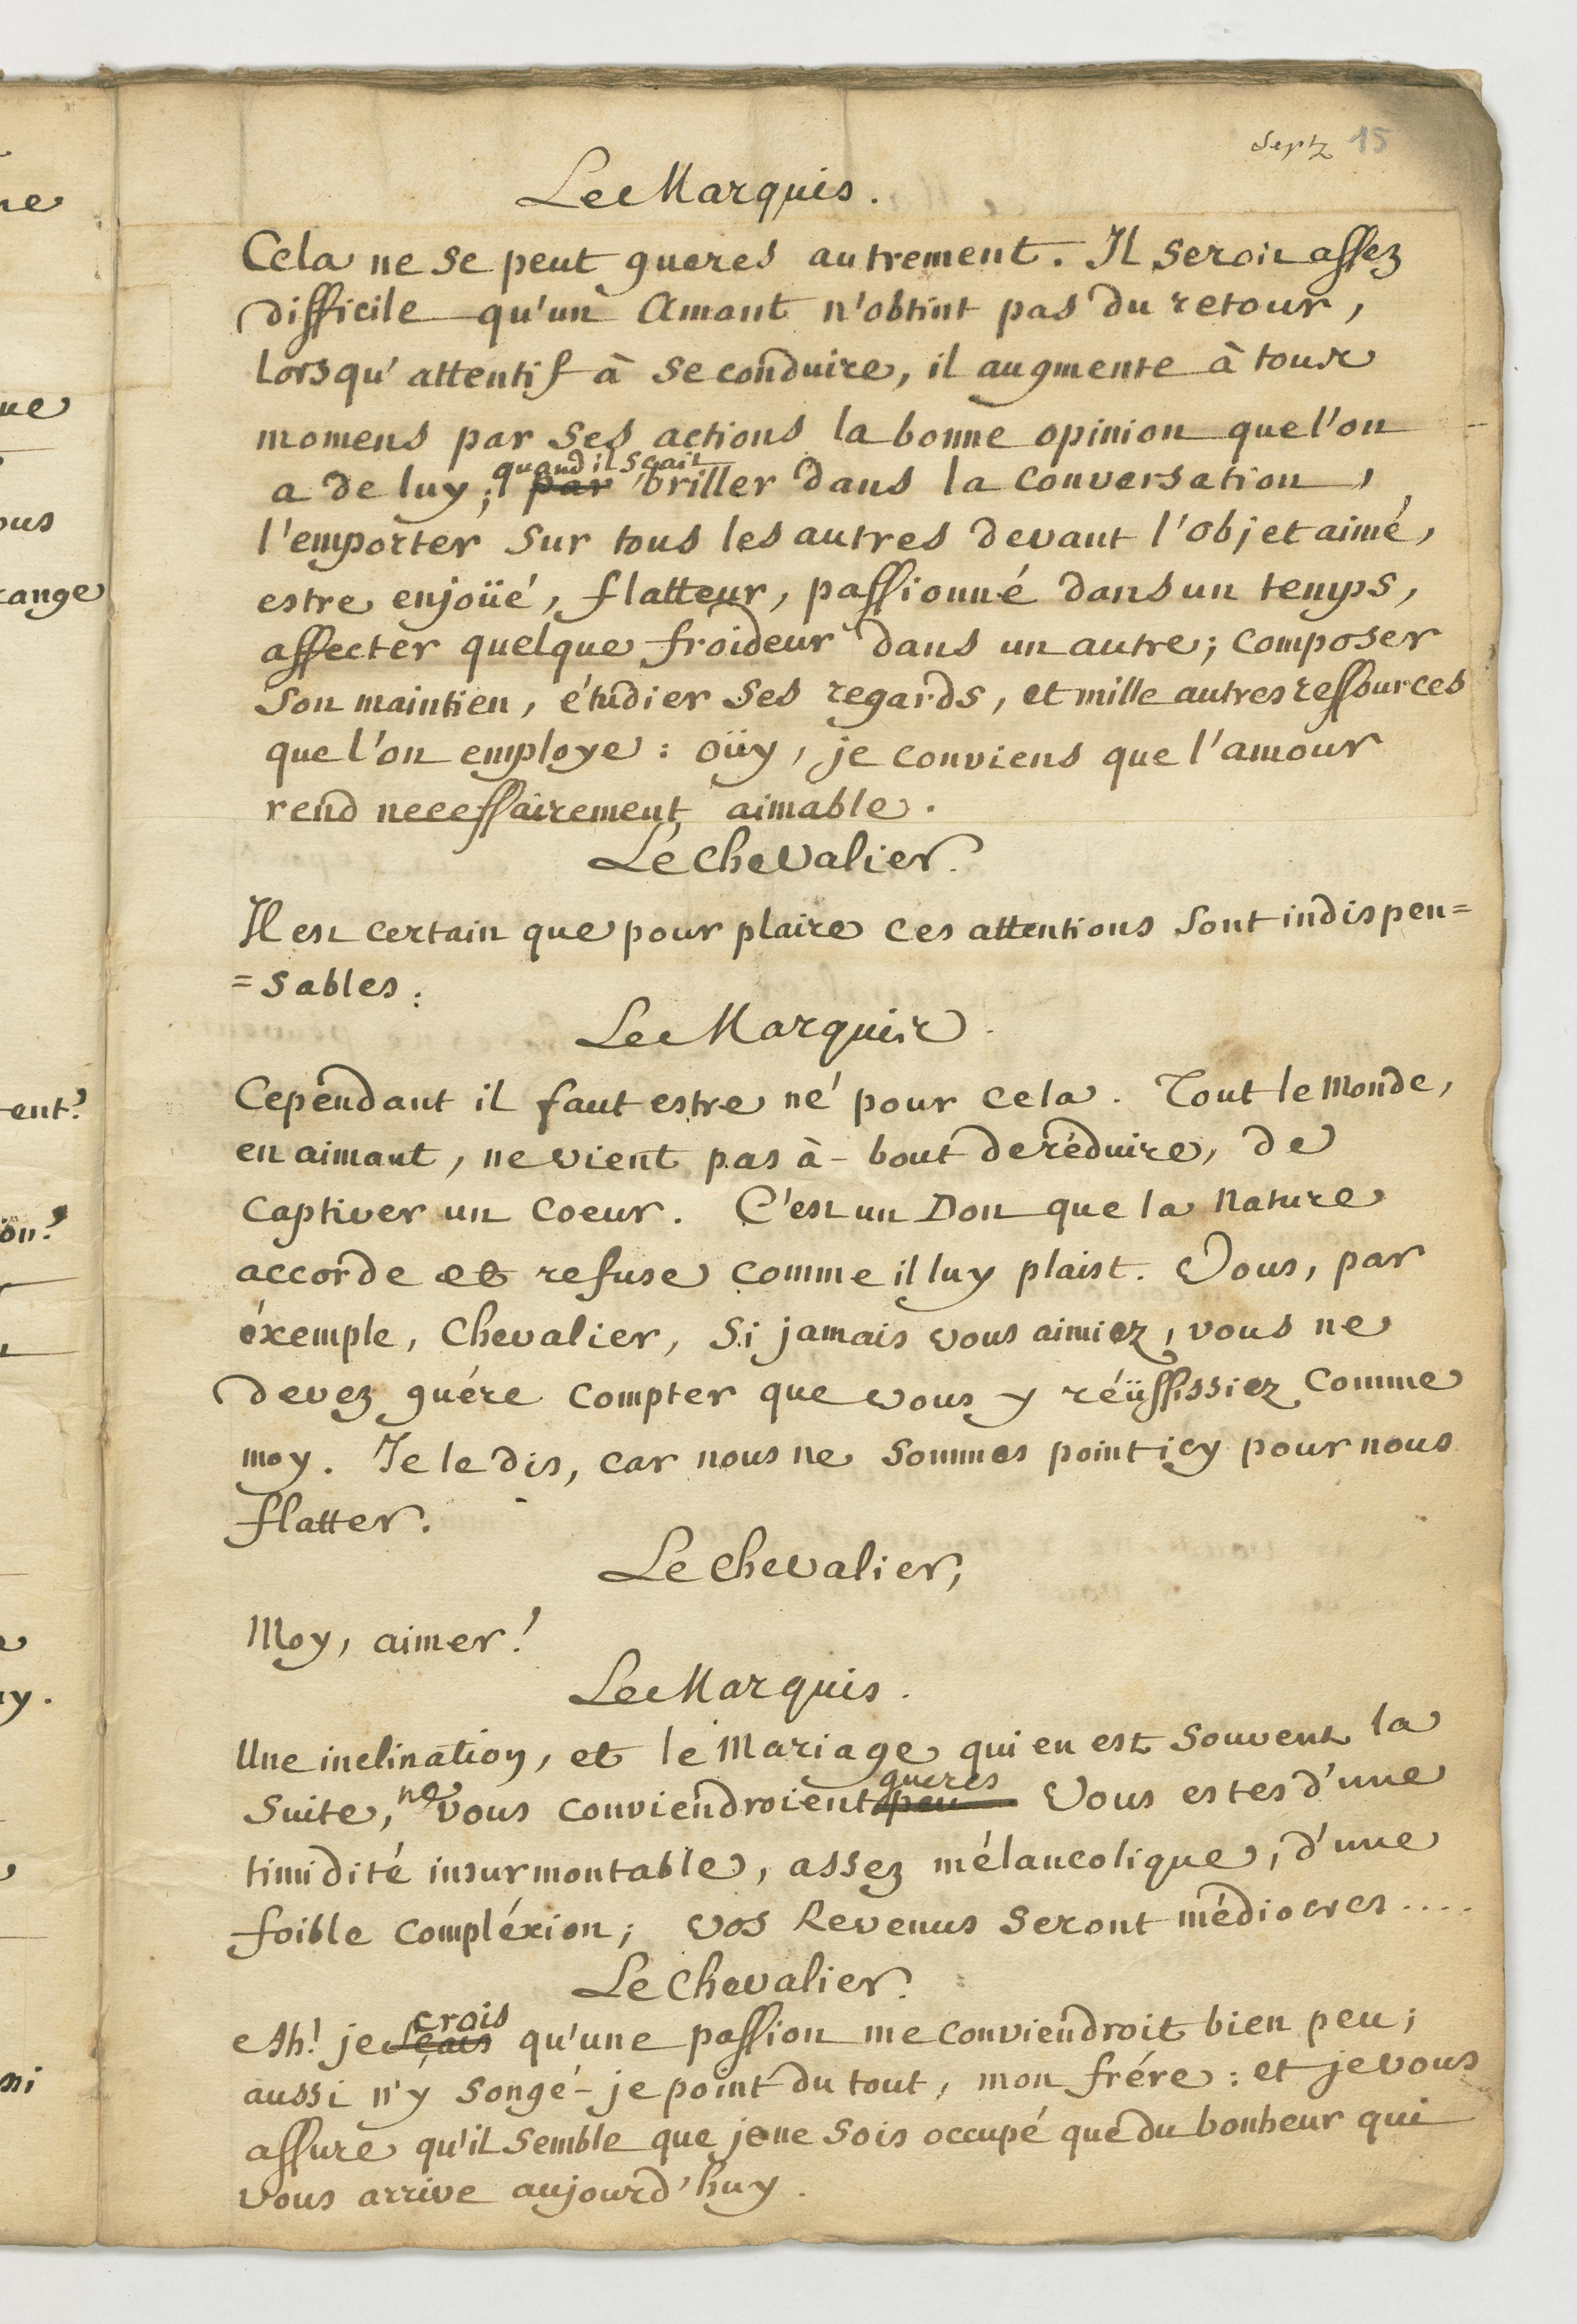 Sept 15
Le Marquis.
Cela ne se peut gueres autrement. Il seroit assez
difficile qu'un Amant n'obtint pas du retour,
lorsqu'attentif à se conduire, il augmente à tous
momens par ses actions la bonne opinion que l'on
quand il sçait
a de luy; par briller dans la conversation,
l'emporter sur tous les autres devant l'objet aimé,
estre enjoüé, flatteur, passionné dans un temps,
affecter quelque froideur dans un autre; composer
son maintien, étudier ses regards, et mille autres ressources
que l'on employe: oüy, je conviens que l'amour
rend necessairement aimable.
Le Chevalier.
Il est certain que pour plaire ces attentions sont indispen=
=sables.
Le Marquis.
Cependant il faut estre né pour cela. Tout le Monde,
en aimant, ne vient pas à-bout de réduire, de
captiver un coeur. C'est un Don que la Nature
accorde et refuse comme il luy plaist. Vous, par
éxemple, Chevalier, si jamais vous aimiez, vous ne
devez guére compter que vous y réüssissiez comme
moy. Je le dis, car nous ne sommes point icy pour nous
flatter.
Le Chevalier,
Moy, aimer!
Le Marquis.
Une inclination, et le Mariage qui en est souvent la
ne gueres
suite, vous conviendroient peu Vous estes d'une
timidité insurmontable, assez mélancolique, d'une
foible compléxion; vos Revenus seront médiocres....
Le Chevalier.
crois
Ah! je sçais qu'une passion me conviendroit bien peu;
aussi n'y songé-je point du tout, mon frére: et je vous
assure qu'il semble que je ne sois occupé que du bonheur qui
vous arrive aujourd'huy.
ne
ue
ous
range
ent?
on?
uy.